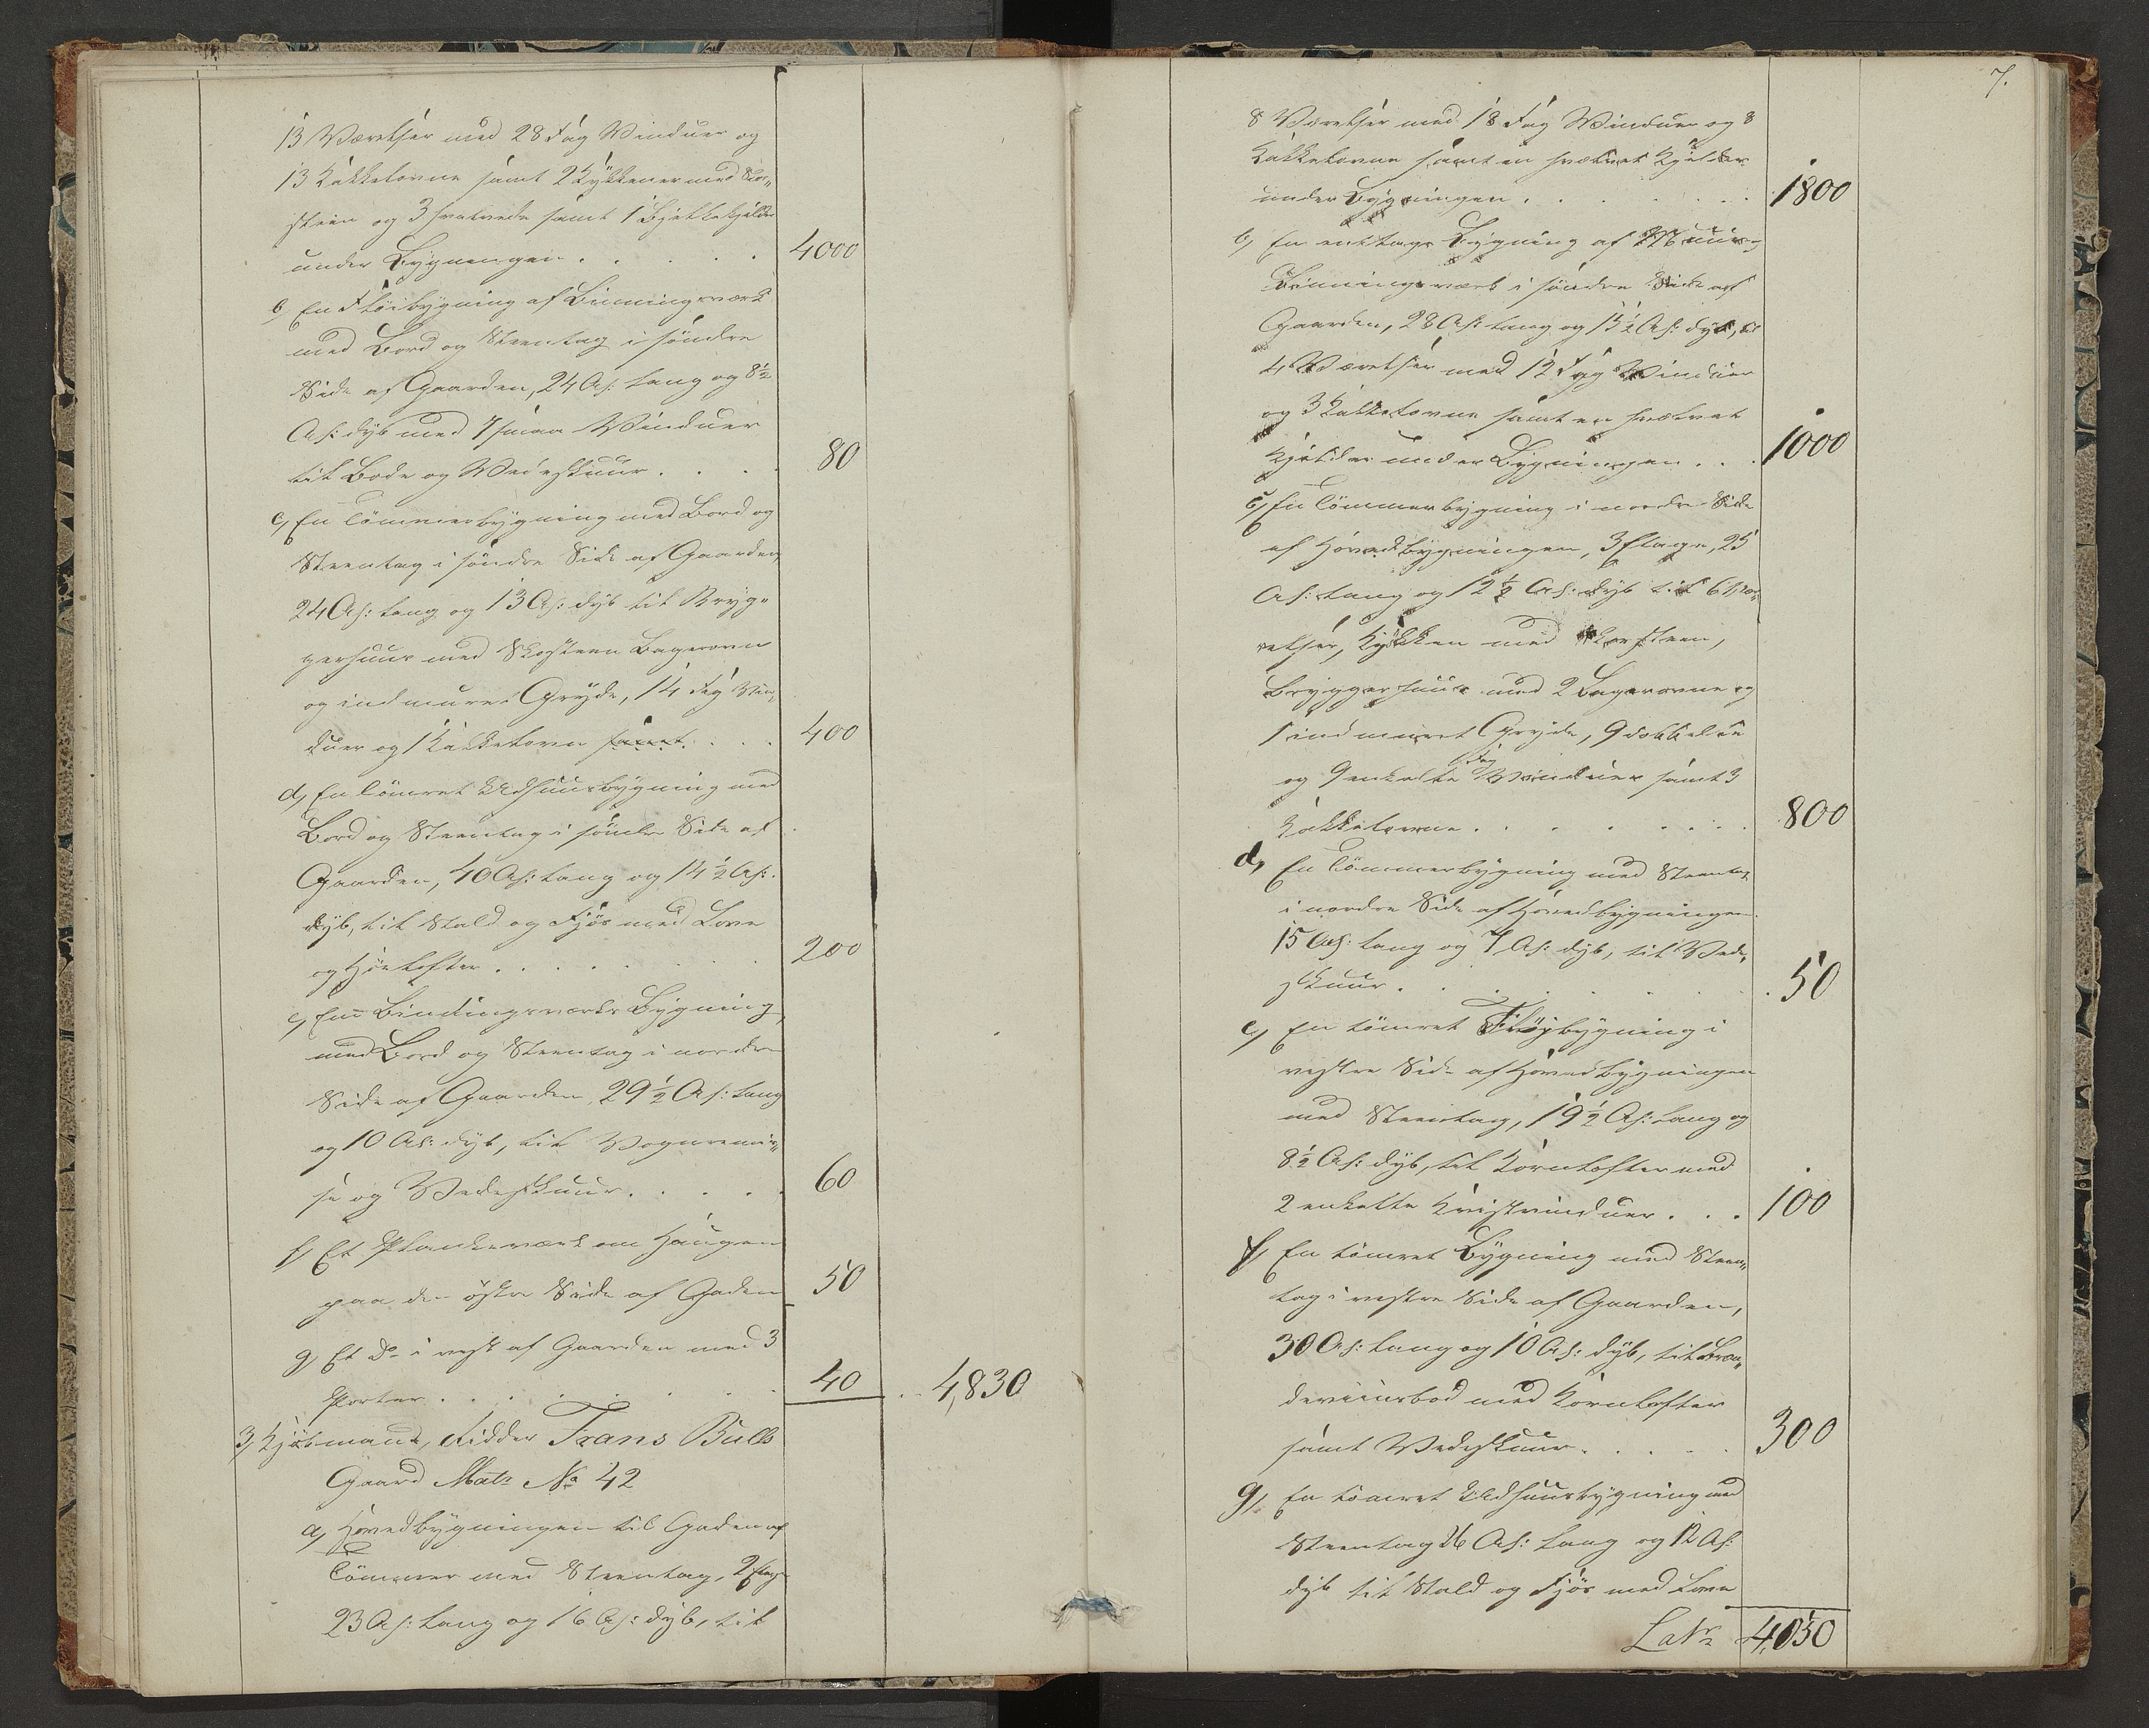 13 Værelser med 28 Fag Vinduer og
13 Kakkelovne samt 2 Kjøkkener med Skor„
steen og 3 hvælvede samt 1 Bjelkekjelder
under Bygningen . . . . . 4000
b, En Fløibygning af Bindingsværk
med Bord og Steentag i søndre
Side af Gaarden, 24 Al: lang og 8½
Al: dyb med 7 smaa Vinduer
til Bode og Vedeskuur . . . . 80
c, En Tømmerbygning med Bord og
Steentag i søndre Side af Gaarden,
24 Al: lang og 13 Al: dyb til Bryg„
gerhuus med Skosteen Bagerovn
og indmuret Gryde, 14 Fag Vin„
duer og 1 Kakkelovn samt . . . 400
d, En tømret Udhuusbygning med
Bord og Steentag i søndre Side af
Gaarden, 40 Al: lang og 14½ Al:
dyb, til Stald og Fjøs med Love
og Høelofter . . . . . . 200
e, En Bindingsværks Bygning,
med Bord og Steentag i nordre
Side af Gaarden, 29½ Al: lang
og 10 Al: dyb, til Vognremi„
se og Vedeskuur . . . . . 60
f, Et Plankeværk om Haugen
paa den østre Side af Gaden 50
g, Et Do i vest af Gaarden med 3
Porter . . . . . . . 40 . . 4,830
3, Kjøbmand, Ridder Frans Bulls
Gaard Matr No 42
a, Hovedbygningen til Gaden af
Tømmer med Steentag, 2 Etage
23 Al: lang og 16 Al: dyb, til
7.
8 Værelser med 18 Fag Vinduer og 8
Kakkelovne samt en hvælvet Kjelder
under Bygningen . . . . . . 1800
b, En entages Bygning af Muur og
Bindingsværk i søndre Side af
Gaarden, 28 Al: lang og 15½ Al: dyb, til
4 Værelser med 12 Fag Vinduer
og 3 Kakkelovne samt en hvælvet
Kjelder under Bygningen . . . 1000
c, En Tømmerbygning i nordre Side
af Hovedbygningen, 3 Etage, 25
Al: lang og 12½ Al: dyb til 6 Væ„
relser, Kjøkken med Skorsteen,
Bryggerhuus med 2 Bagerovne og
1 indmuret Gryde, 9 dobbelte
Fag
og 9 enkelte Vinduer samt 3
Kakkelovne . . . . . . . . 800
d, En Tømmerbygning med Steentag
i nordre Side af Hovedbygningen
15 Al: lang og 7 Al: dyb, til Vede„
skuur . . . . . . . . 50
e, En tømret Fløybygning i
vestre Side af Hovedbygningen
med Steentag, 19½ Al: lang og
8½ Al: dyb, til Kornlofter med
2 enkelte Kvistvinduer . . . 100
f, En tømret Bygning med Steen„
tag i vestre Side af Gaarden,
30 Al: lang og 10 Al: dyb, til Bræn„
deviinsbod med Kornlofter
samt Vedeskuur . . . . . 300
g, En tømret Udhuusbygning med
Steentag 26 Al: lang og 12 Al:
dyb til Stald og Fjøs med Love
Latr 4,050